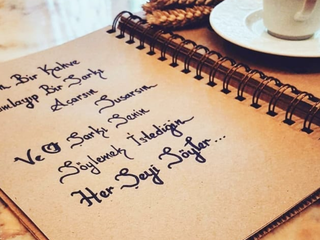 Bir Kahve
Bir Şarkı
Açarsın Susarsın
Ve O Şarkı Senin
Söylemek İstediğin
Her Şeyi Söyler...